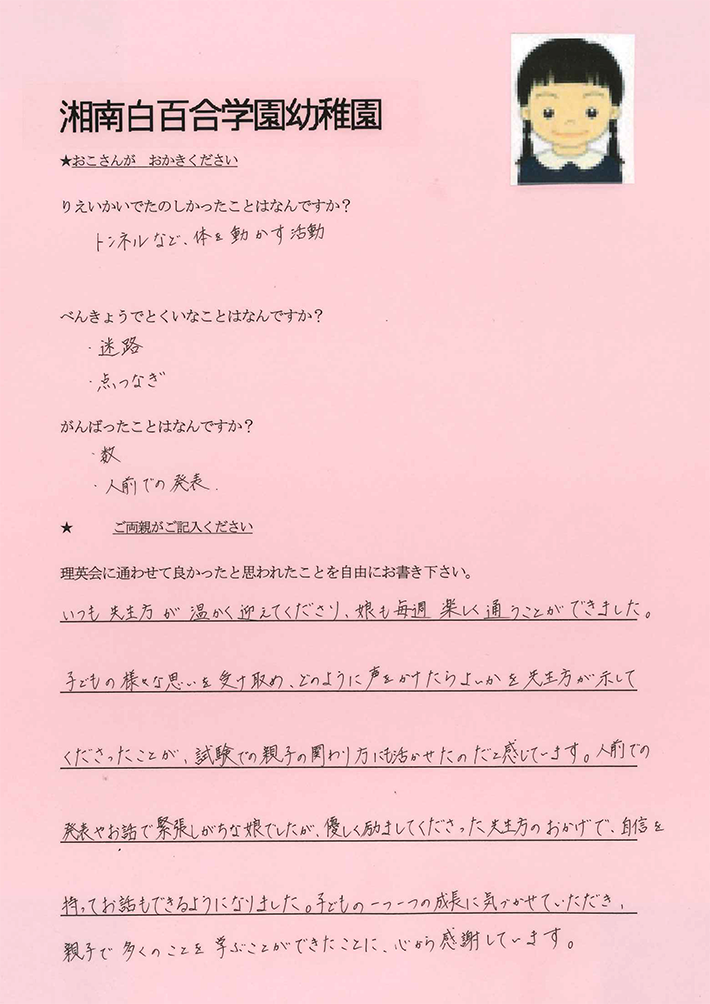 湘南白百合学園幼稚園
★おこさんが　おかきください
りえいかいでたのしかったことはなんですか?
トンネルなど、体を動かす活動
べんきょうでとくいなことはなんですか?
・迷路
・点つなぎ
がんばったことはなんですか?
・数
・人前での発表.
★　　ご両親がご記入ください
理英会に通わせて良かったと思われたことを自由にお書き下さい。
いつも先生方が温かく迎えてくださり、娘も毎週楽しく通うことができました。
子どもの様々な思いを受け取め、どのように声をかけたらよいかを先生方が示して
くださったことが、試験での親子の関わり方にも活かせたのだと感じています。人前での
発表やお話で緊張しがちな娘でしたが、優しく励ましてくださった先生方のおかげで、自信を
持ってお話もできるようになりました。子どもの一つ一つの成長に気づかせていただき、
親子で多くのことを学ぶことができたことに、心から感謝しています。